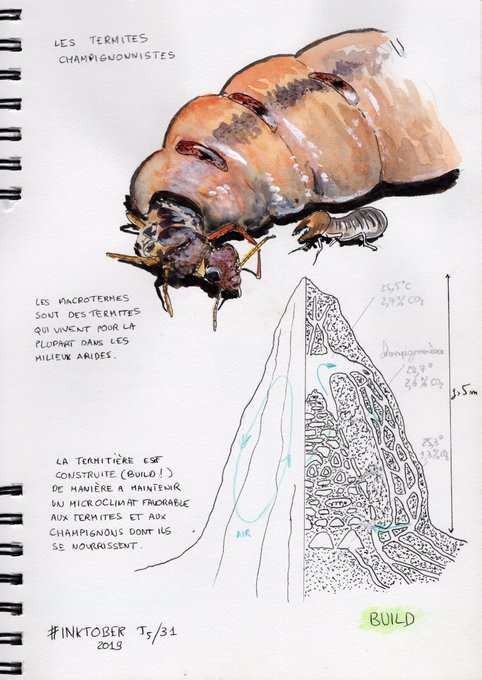 LES TERMITES
CHAMPIGNONNISTES
LES MACROTERMES
SONT DES TERMITES
QUI VIVENT POUR LA
PLUPART DANS LES
MILIEUX ARIDES.
25,5°C
2,7% CO2
champignonnière
2,6% CO2
25,3°
1,3% CO2
LA TERMITIÈRE EST
CONSTRUITE (BUILD!)
DE MANIÈRE A MAINTENIR
UN MICROCLIMAT FAVORABLE
AUX TERMITES ET AUX
CHAMPIGNONS DONT ILS
SE NOURRISSENT.
AIR
BUILD
#INKTOBER J5/31
2019